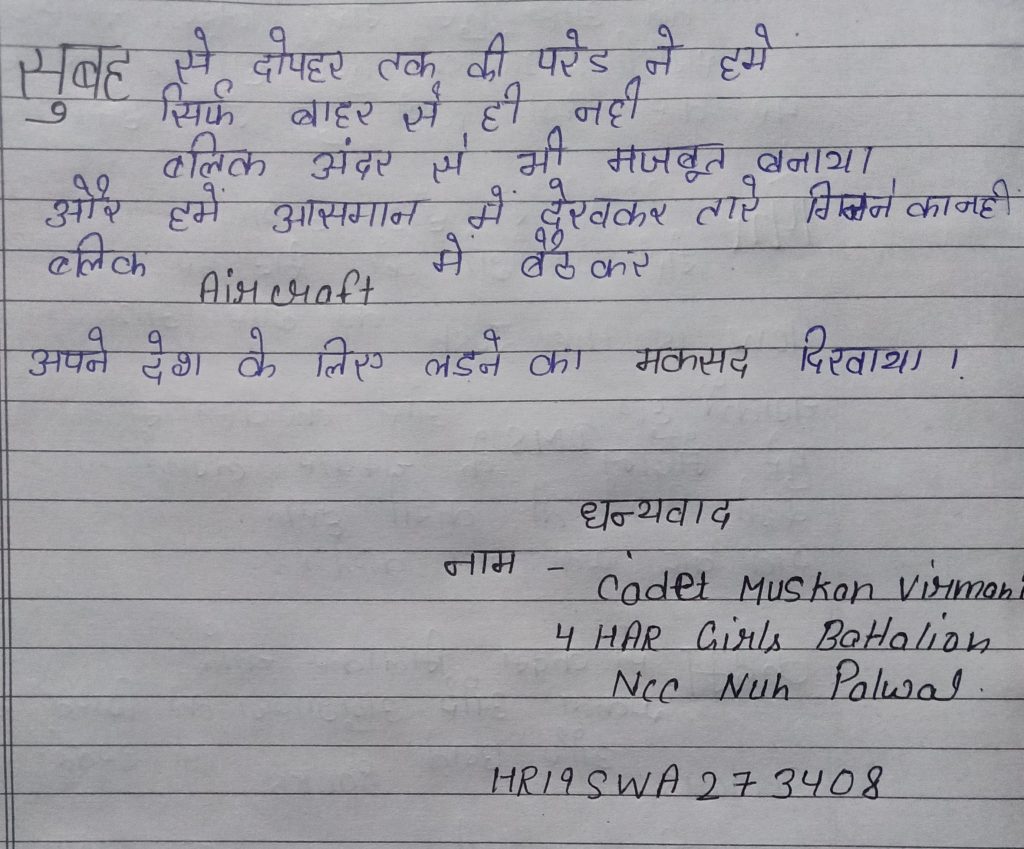 सुबह से दोपहर तक की परेड ने हमे
सिर्फ बाहर से ही नही
बल्कि अंदर से भी मजबूत बनाया
और हमें आसमान में देखकर तारे गिनने का नहीं
बल्कि Aircraft में बैठकर
अपने देश के लिए लडने का मकसद दिखाया।
धन्यवाद
नाम - Cadet Muskan Virmani
4 HAR Girls Battalion
Ncc Nuh Palwal.
HR19SWA273408